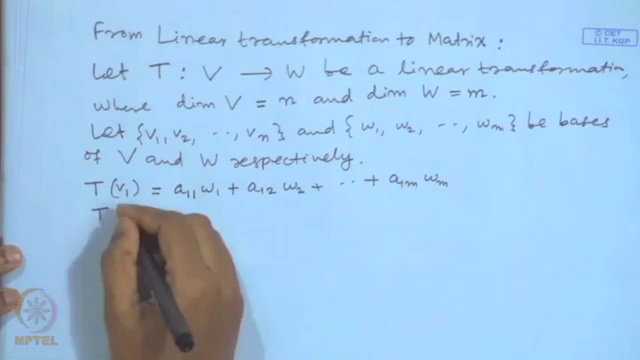 From Linear transformation to Matrix:
© CET
I.I.T. KGP
Let T: V → W be a linear transformation,
where dim V = n and dim W = m.
Let {v₁, v₂, .., vₙ} and {w₁, w₂, .., wₘ} be bases
of V and W respectively.
T(v₁) = a₁₁w₁ + a₁₂w₂ + .. + a₁ₘwₘ
T
NPTEL